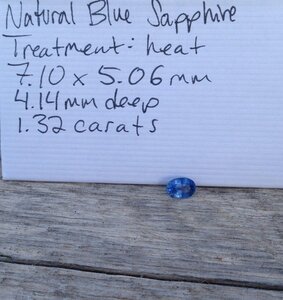 Natural Blue Sapphire
Treatment: heat
7.10 x 5.06 mm
4.14 mm deep
1.32 carats